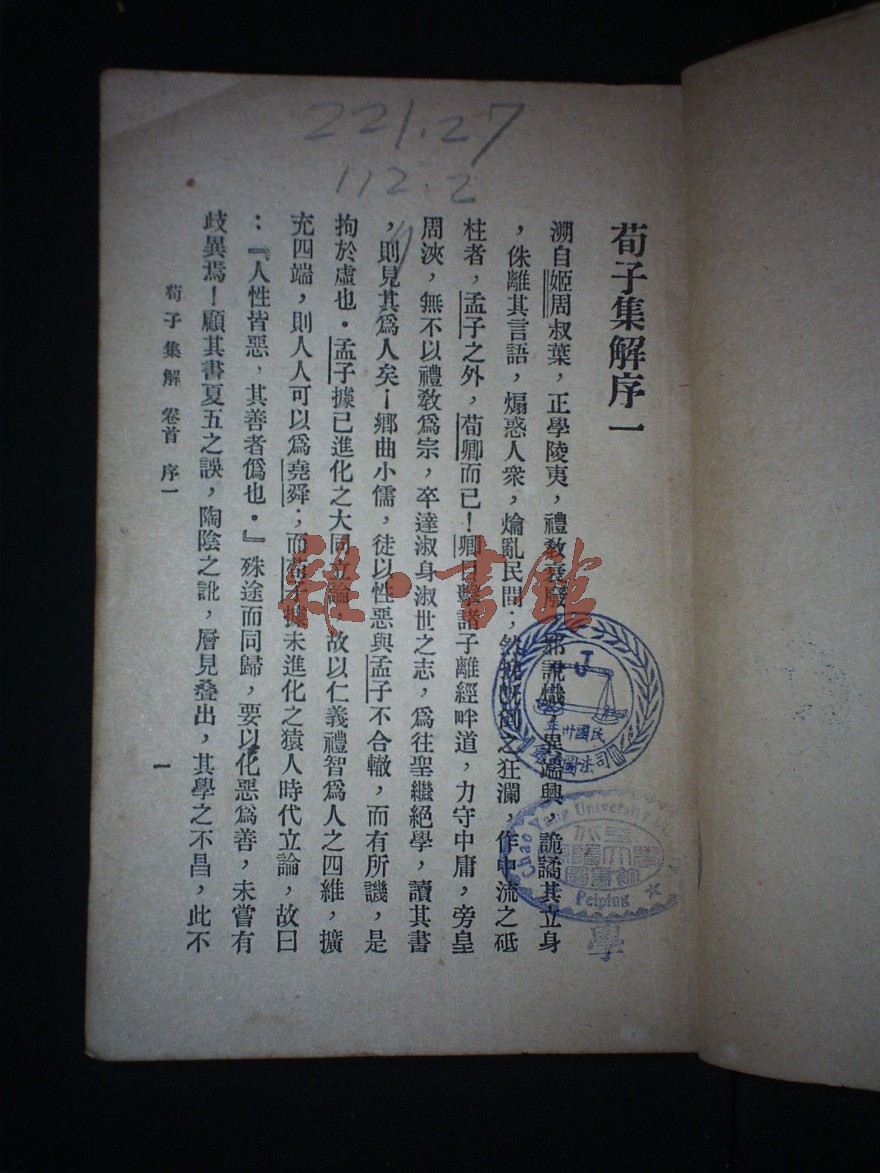 221.27
112.2
荀子集解序一
溯自姬周叔葉，正學陵夷，禮敎衰廢，邪說熾，異端興，詭譎其立身
，侏離其言語，煽惑人衆，爚亂民間；然挽旣倒之狂瀾，作中流之砥
柱者，孟子之外，荀卿而已！卿目擊諸子離經畔道，力守中庸，旁皇
周浹，無不以禮敎爲宗，卒達淑身淑世之志，爲往聖繼絕學，讀其書
，則見其爲人矣！鄉曲小儒，徒以性惡與孟子不合轍，而有所譏，是
拘於虛也．孟子據已進化之大同立論，故以仁義禮智爲人之四維，擴
充四端，則人人可以爲堯舜；而荀子據未進化之猿人時代立論，故曰
：『人性皆惡，其善者僞也．』殊途而同歸，要以化惡爲善，未嘗有
歧異焉！顧其書夏五之誤，陶陰之訛，層見叠出，其學之不昌，此不
荀子集解 卷首 序一
一
雜·書館
民國卅年
司法
Chao Yang University
Peiping
學